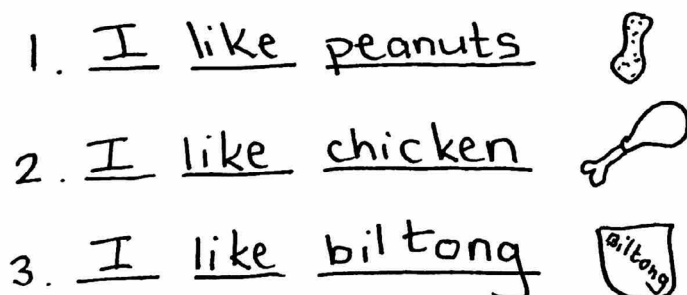 1. I like peanuts
2. I like chicken
3. I like biltong
Biltong